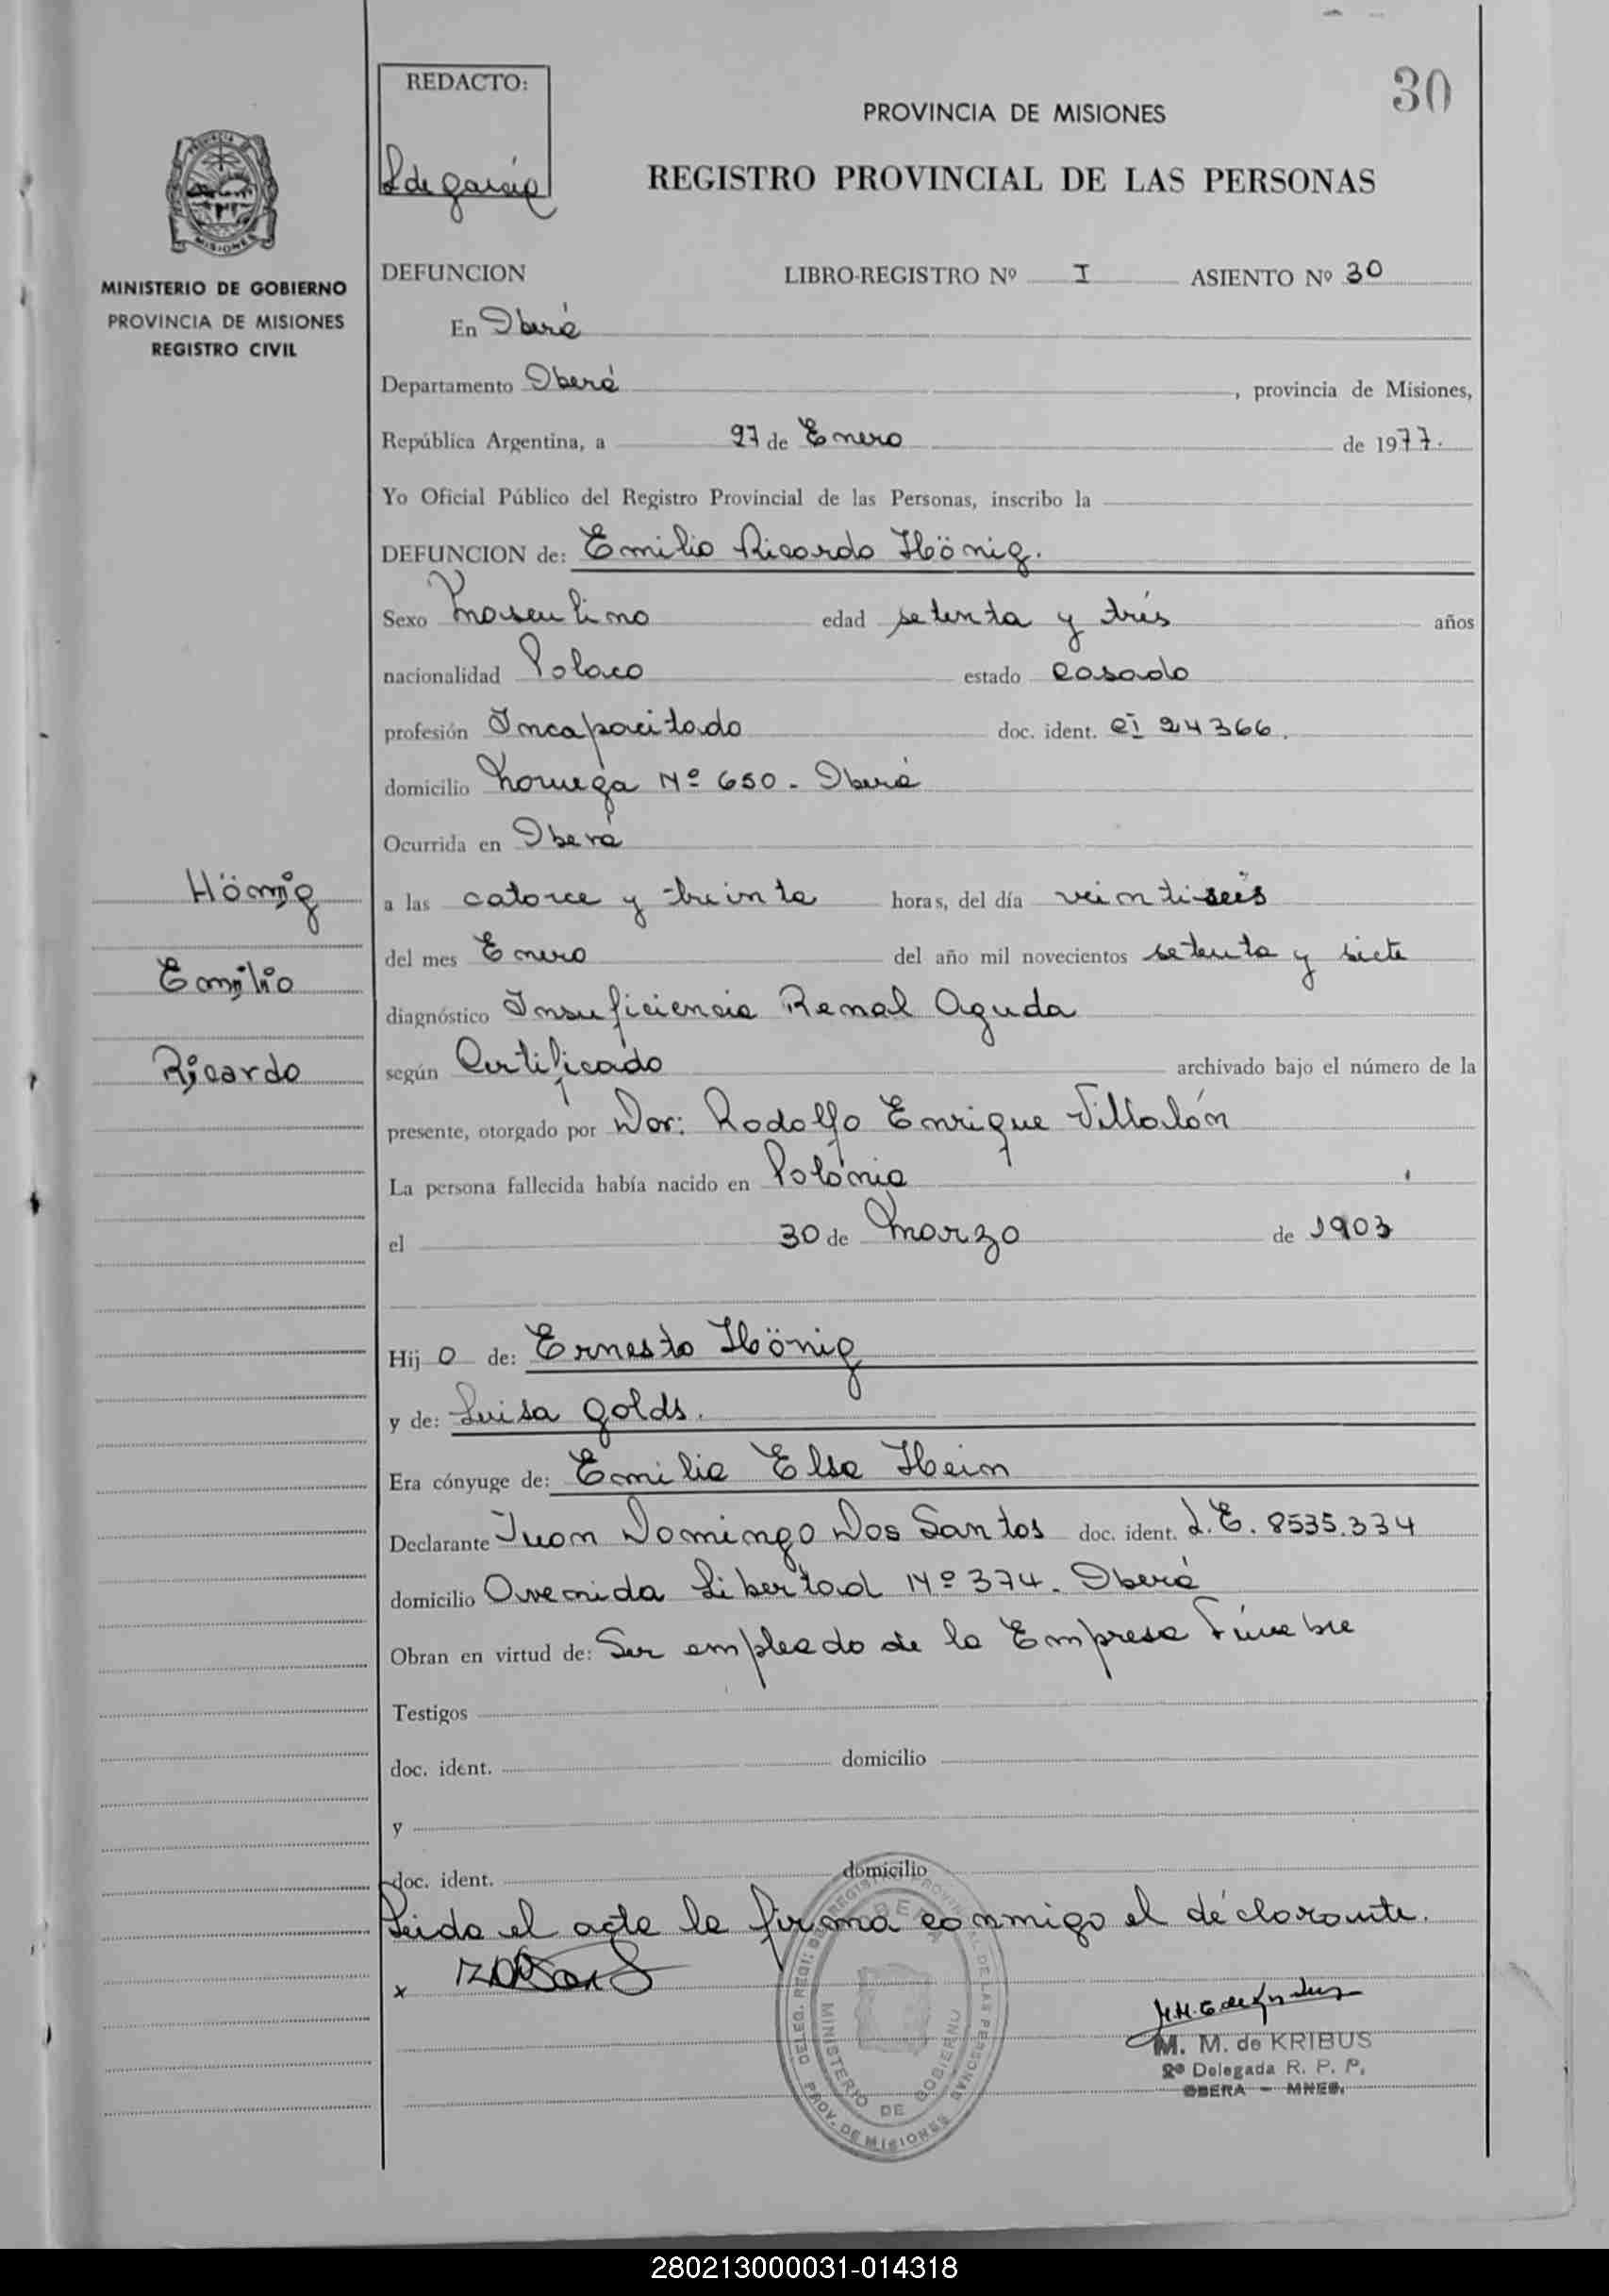 30
REDACTO:
L de García
PROVINCIA DE MISIONES
REGISTRO PROVINCIAL DE LAS PERSONAS
MISIONES
MINISTERIO DE GOBIERNO
PROVINCIA DE MISIONES
REGISTRO CIVIL
DEFUNCION LIBRO-REGISTRO Nº I ASIENTO Nº 30
En Oberá
Departamento Oberá, provincia de Misiones,
República Argentina, a 27 de Enero de 1977.
Yo Oficial Público del Registro Provincial de las Personas, inscribo la
DEFUNCION de: Emilio Ricardo Hönig.
Sexo Masculino edad setenta y trés años
nacionalidad Polaco estado casado
profesión Incapacitado doc. ident. CI 24366.
domicilio Noruega Nº 650 - Oberá
Ocurrida en Oberá
a las catorce y treinta horas, del día veintiseis
del mes Enero del año mil novecientos setenta y siete
diagnóstico Insuficiencia Renal Aguda
según Certificado archivado bajo el número de la
presente, otorgado por Dor: Rodolfo Enrique Villalón
La persona fallecida había nacido en Polónia
el 30 de Marzo de 1903
Hönig
Emilio
Ricardo
Hij o de: Ernesto Hönig
y de: Luisa Golds.
Era cónyuge de: Emilia Elsa Hein
Declarante Juan Domingo Dos Santos doc. ident. L.E. 8535.334
domicilio Avenida Libertad Nº 374. Oberá
Obran en virtud de: Ser empleado de la Empresa Fúnebre
Testigos
doc. ident. domicilio
y
doc. ident. domicilio
Leida el acta la firma conmigo el déclarante.
x
DELEG. REGI. DEL REGISTRO PROVINCIAL DE LAS PERSONAS
OBERA
MINISTERIO DE GOBIERNO
PROV. DE MISIONES
M. M. de KRIBUS
2ª Delegada R. P. P.
OBERA - MNES.
280213000031-014318